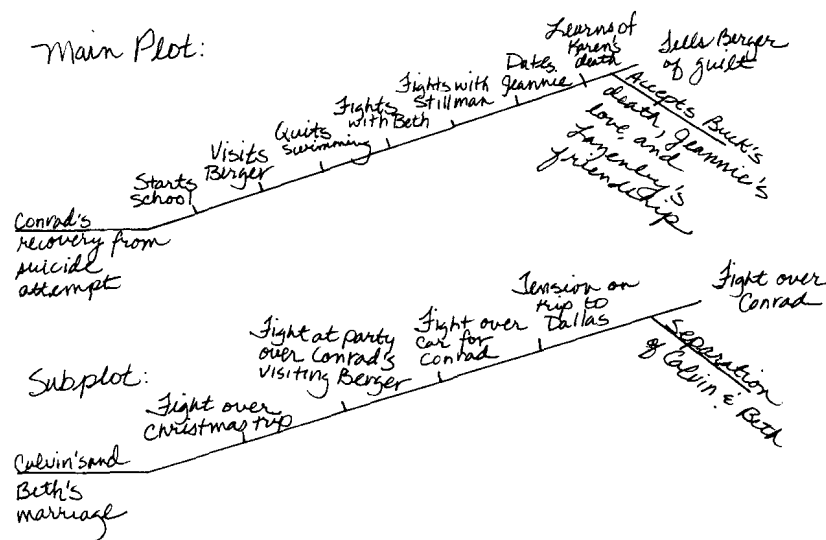 Main Plot:
Conrad's
recovery from
suicide
attempt
Starts
school
Visits
Berger
Quits
swimming
Fights
with Beth
Fights with
Stillman
Dates
Jeannie
Learns of
Karen's
death
Tells Berger
of guilt
Accepts Buck's
death, Jeannie's
love, and
Lazenby's
friendship
Subplot:
Calvin's and
Beth's
marriage
Fight over
Christmas trip
Fight at party
over Conrad's
visiting Berger
Fight over
car for
Conrad
Tension on
trip to
Dallas
Fight over
Conrad
Separation
of Calvin & Beth